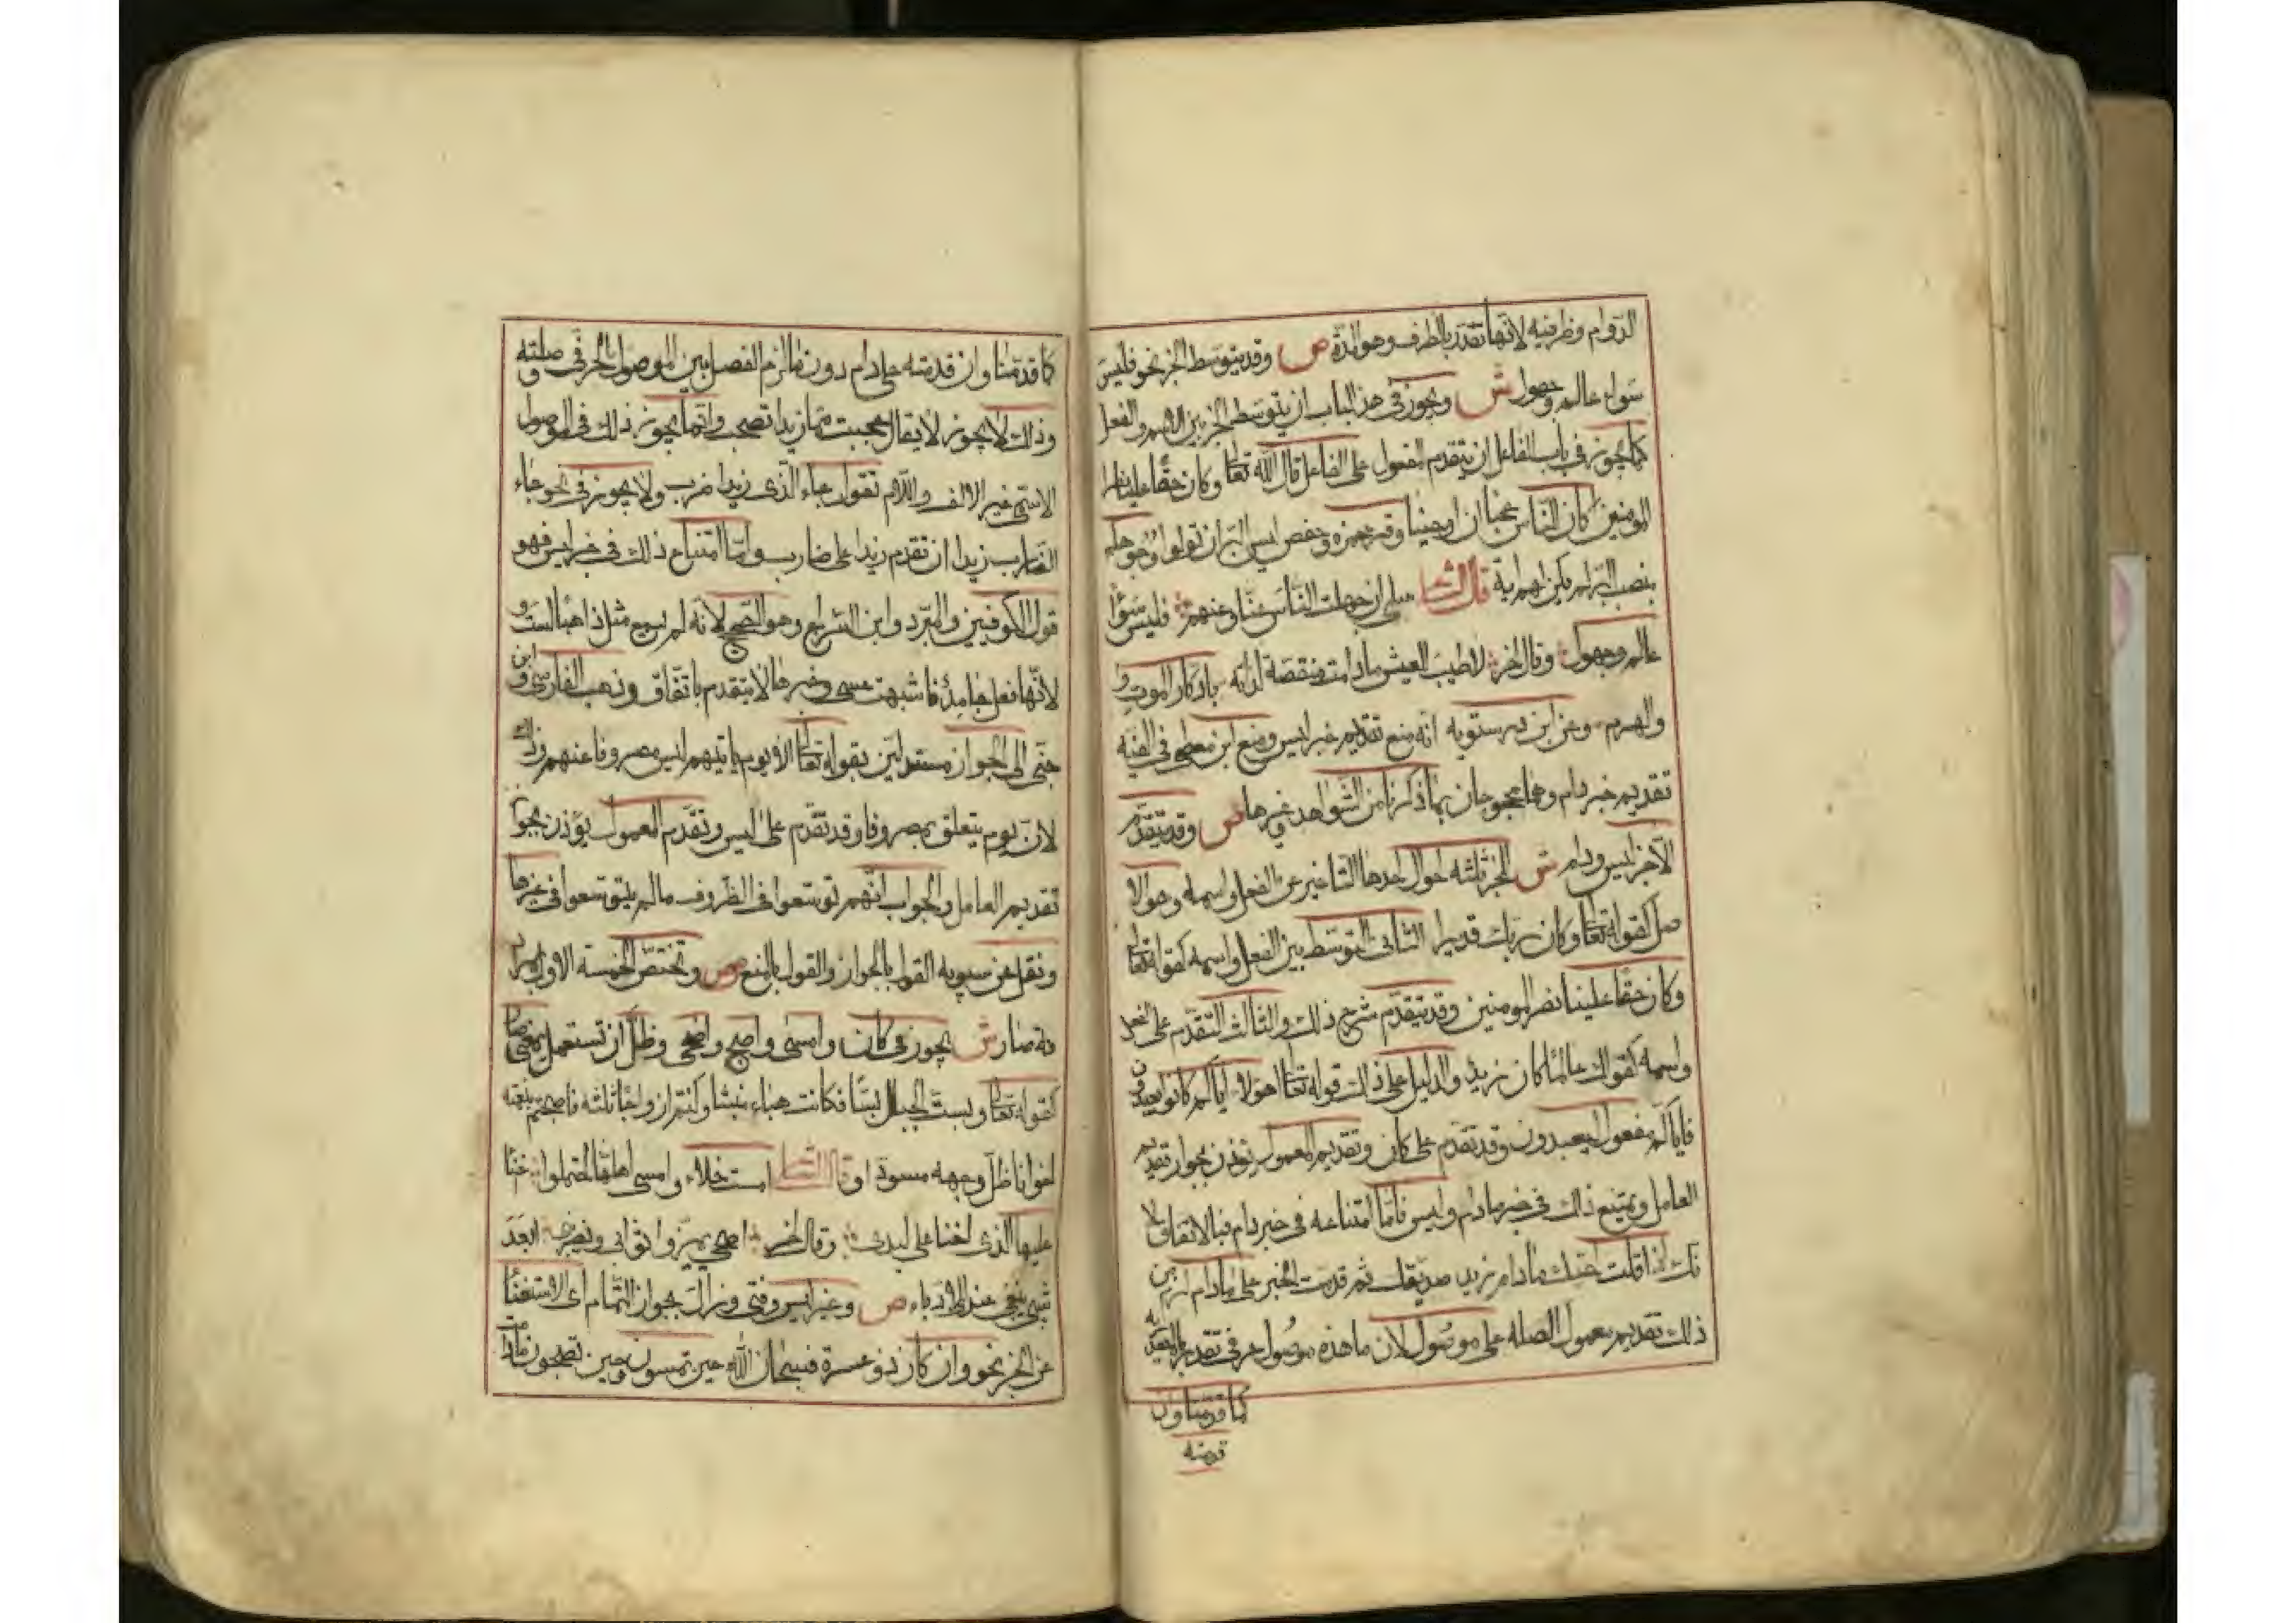 الدوام وظرفيه لانها تقدر بالظرف وهو المدة ص وقد يتوسط الخبر نحو فليس
سواء عالم وجهول ش ويجوز فى هذا الباب ان يتوسط الخبر بين الاسم والفعل
كما يجوز فى باب الفاعل ان يتقدم المفعول على الفاعل قال الله تعالى وكان حقا علينا نصر
المومنين اكان للناس عجبا ان اوحينا وقرء حمزه وحفص ليس البر ان تولوا وجوهكم
بنصب البر قال الشاعر سلى ان جهلت الناس عنا وعنهم فليس سواء
عالم وجهول وقال اخر لا طيب للعيش ما دامت منغصة لذاته بادكار الموت و
والهرم وعن ابن درستويه انه منع تقديم خبر ليس ومنع ابن معطى فى الفيه
تقديم خبر دام وهما محجوجان بما ذكرنا من الشواهد وغيرها ص وقد يتقدم
الا خبر ليس ودام ش للخبر ثلثه احوال احدها التاخير عن الفعل واسمه وهو الا
صل كقوله تعالى وكان ربك قديرا الثانى التوسط بين الفعل واسمه كقوله تعالى
وكان حقا علينا نصر المومنين وقد يتقدم شرح ذلك والثالث التقدم على الفعل
واسمه كقولك عالما كان زيد والدليل على ذلك قوله تعالى اهؤلاء اياكم كانوا يعبدون
فاياكم مفعول ليعبدون وقد تقدم على كان وتقديم المعمول يؤذن بجواز تقديم
العامل ويمتنع ذلك فى خبر ما دام وليس فاما امتناعه فى خبر دام فبالاتفاق لا
نك اذا قلت احبك ما دام زيد صديقك ثم قدمت الخبر على ما دام لزم من
ذلك تقديم معمول الصله على موصول لان ما هذه موصول حرفى تقدر بالمصدر
كما قدمنا وان
قدمته
كما قدمنا وان قدمته على دام دون ما لزم الفصل بين الموصول الحرفى وصلته
وذلك لا يجوز لا يقال عجبت مما زيدا تصحب وانما يجوز ذلك فى الموصول
الاسمى غير الالف واللام تقول جاء الذى زيدا ضرب ولا يجوز فى نحو جاء
الضارب زيدا ان تقدم زيدا على ضارب واما امتناع ذلك فى خبر ليس فهو
قول الكوفيين والمبرد وابن السراج وهو الصحيح لانه لم يسمع مثل ذاهبا لست و
لانها فعل جامد فاشبهت عسى وخبرها لا يتقدم باتفاق وذهب الفارسى وابن
جنى الى الجواز مستدلين بقوله تعالى الا يوم ياتيهم ليس مصروفا عنهم وذلك
لان يوم يتعلق بمصروفا وقد تقدم على ليس وتقدم المعمول يؤذن بجواز
تقديم العامل والجواب انهم توسعوا فى الظروف ما لم يتوسعوا فى غيرها
ونقل عن سيبويه القول بالجواز والقول بالمنع ص وتختص الخمسه الاول بمراد
دة صار ش يجوز فى كان وامسى واصبح واضحى وظل ان تستعمل بمعنى صار
كقوله تعالى وبست الجبال بسا فكانت هباء منبثا وكنتم ازواجا ثلثه فاصبحتم بنعمته
اخوانا ظل وجهه مسودا وقال الشاعر امست خلاء وامسى اهلها احتملوا اخنا
عليها الذى اخنا على لبد وقال اخر اضحى يمزق اثوابى ويضربنى ابعد
شيبى يبغى عندى الادباء ص وغير ليس وفتى وزال بجواز التمام اى الاستغنا
عن الخبر نحو وان كان ذو عسرة فسبحان الله حين تمسون وحين تصبحون ما دا مت